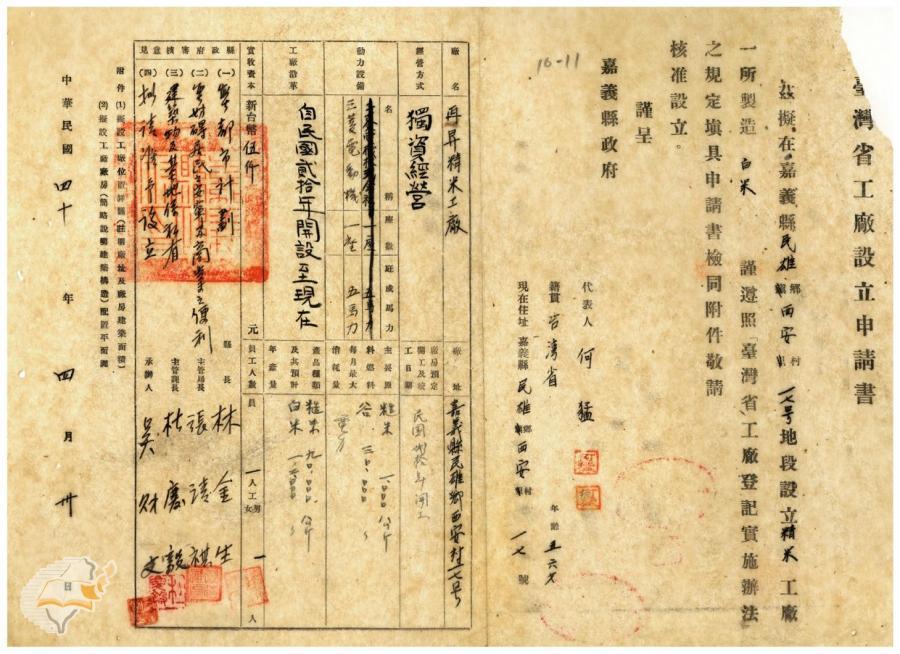 臺灣省工廠設立申請書
茲擬在嘉義縣民雄鄉西安村一七号地段設立精米工廠
一所製造 白米 謹遵照「臺灣省工廠登記實施辦法」
之規定填具申請書檢同附件敬請
核准設立。
謹呈
嘉義縣政府
10-11
代表人 何猛
年齡 五六才
籍貫 台灣省
現在住址 嘉義縣民雄鄉西安村一七號
廠名 再昇精米工廠
廠址 嘉義縣民雄鄉西安村一七号
經營方式 獨資經營
廠房預定開工及竣工日期 民國貳拾年開工
動力設備 名稱 座數 匹或馬力
三菱電動機 一座 五馬力
主要原料燃料每月最大消耗量
糙米
谷
電力
工廠沿革 自民國貳拾年開設至現在
產品種類及其預計年產量
糙米
白米
實收資本 新台幣伍仟元
員工人數 員 一人 工 男 一 女 人
縣政府審核意見
(一)
都市計劃
(二)
(三)建築物及基地係私有
(四)擬請准予設立
縣長 林金生
主管局長
主管課長
承辦人
附件 (1)擬設工廠位置詳圖(註明廠址及廠房建築面積)
(2)擬設工廠廠房(簡略說明建築構造)配置平面圖
中華民國四十年四月卅日